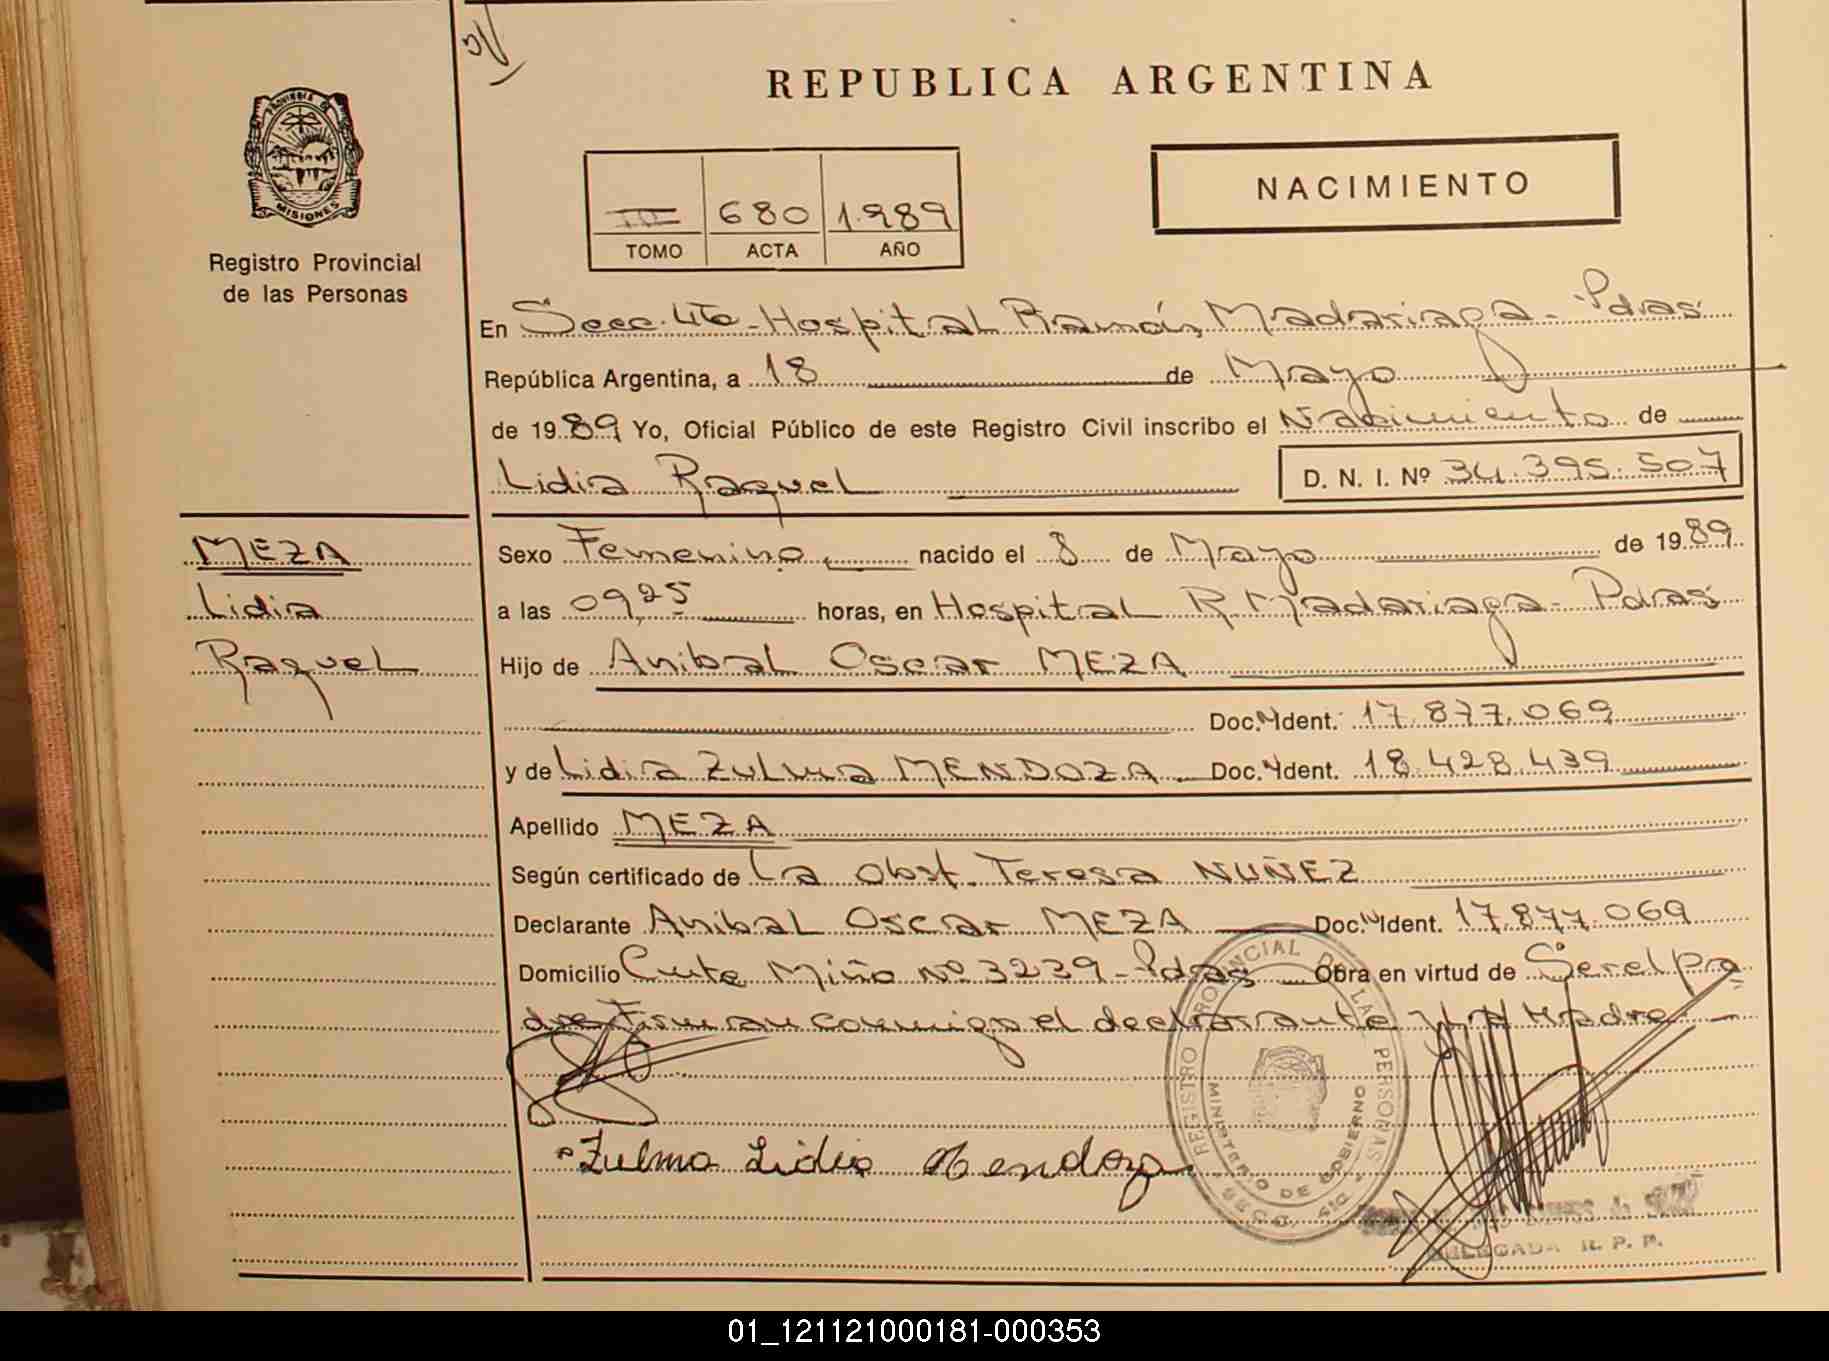 REPUBLICA ARGENTINA
PROVINCIA DE
MISIONES
Registro Provincial
de las Personas
III 680 1.989
TOMO ACTA AÑO
NACIMIENTO
En Secc. 4ta - Hospital Ramón Madariaga - Pdas
República Argentina, a 18 de Mayo
de 1989 Yo, Oficial Público de este Registro Civil inscribo el Nacimiento de
Lidia Raquel D. N. I. Nº 34.395.507
MEZA
Lidia
Raquel
Sexo Femenino nacido el 8 de Mayo de 1989
a las 09,25 horas, en Hospital R. Madariaga - Pdas
Hijo de Anibal Oscar MEZA
Doc. N Ident. 17.877.069
y de Lidia Zulma MENDOZA Doc. N Ident. 18.428.439
Apellido MEZA
Según certificado de La Obst. Teresa NUÑEZ
Declarante Anibal Oscar MEZA Doc. N Ident. 17.877.069
Domicilio Cnte Miño Nº 3239 - Pdas Obra en virtud de Ser el pa
dre Firman conmigo el declarante y la Madre
Zulma Lidia Mendoza
REGISTRO PROVINCIAL DE LAS PERSONAS
MINISTERIO DE GOBIERNO
DELEGADA R. P. P.
01_121121000181-000353